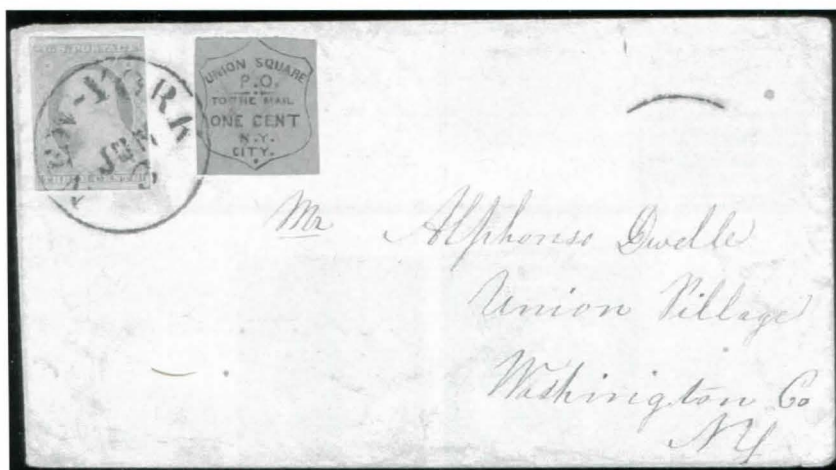 NEW-YORK
JUN
UNION SQUARE
P.O.
TO THE MAIL
ONE CENT
N.Y.
CITY.
Mr Alphonso Dwelle
Union Village
Washington Co
NY